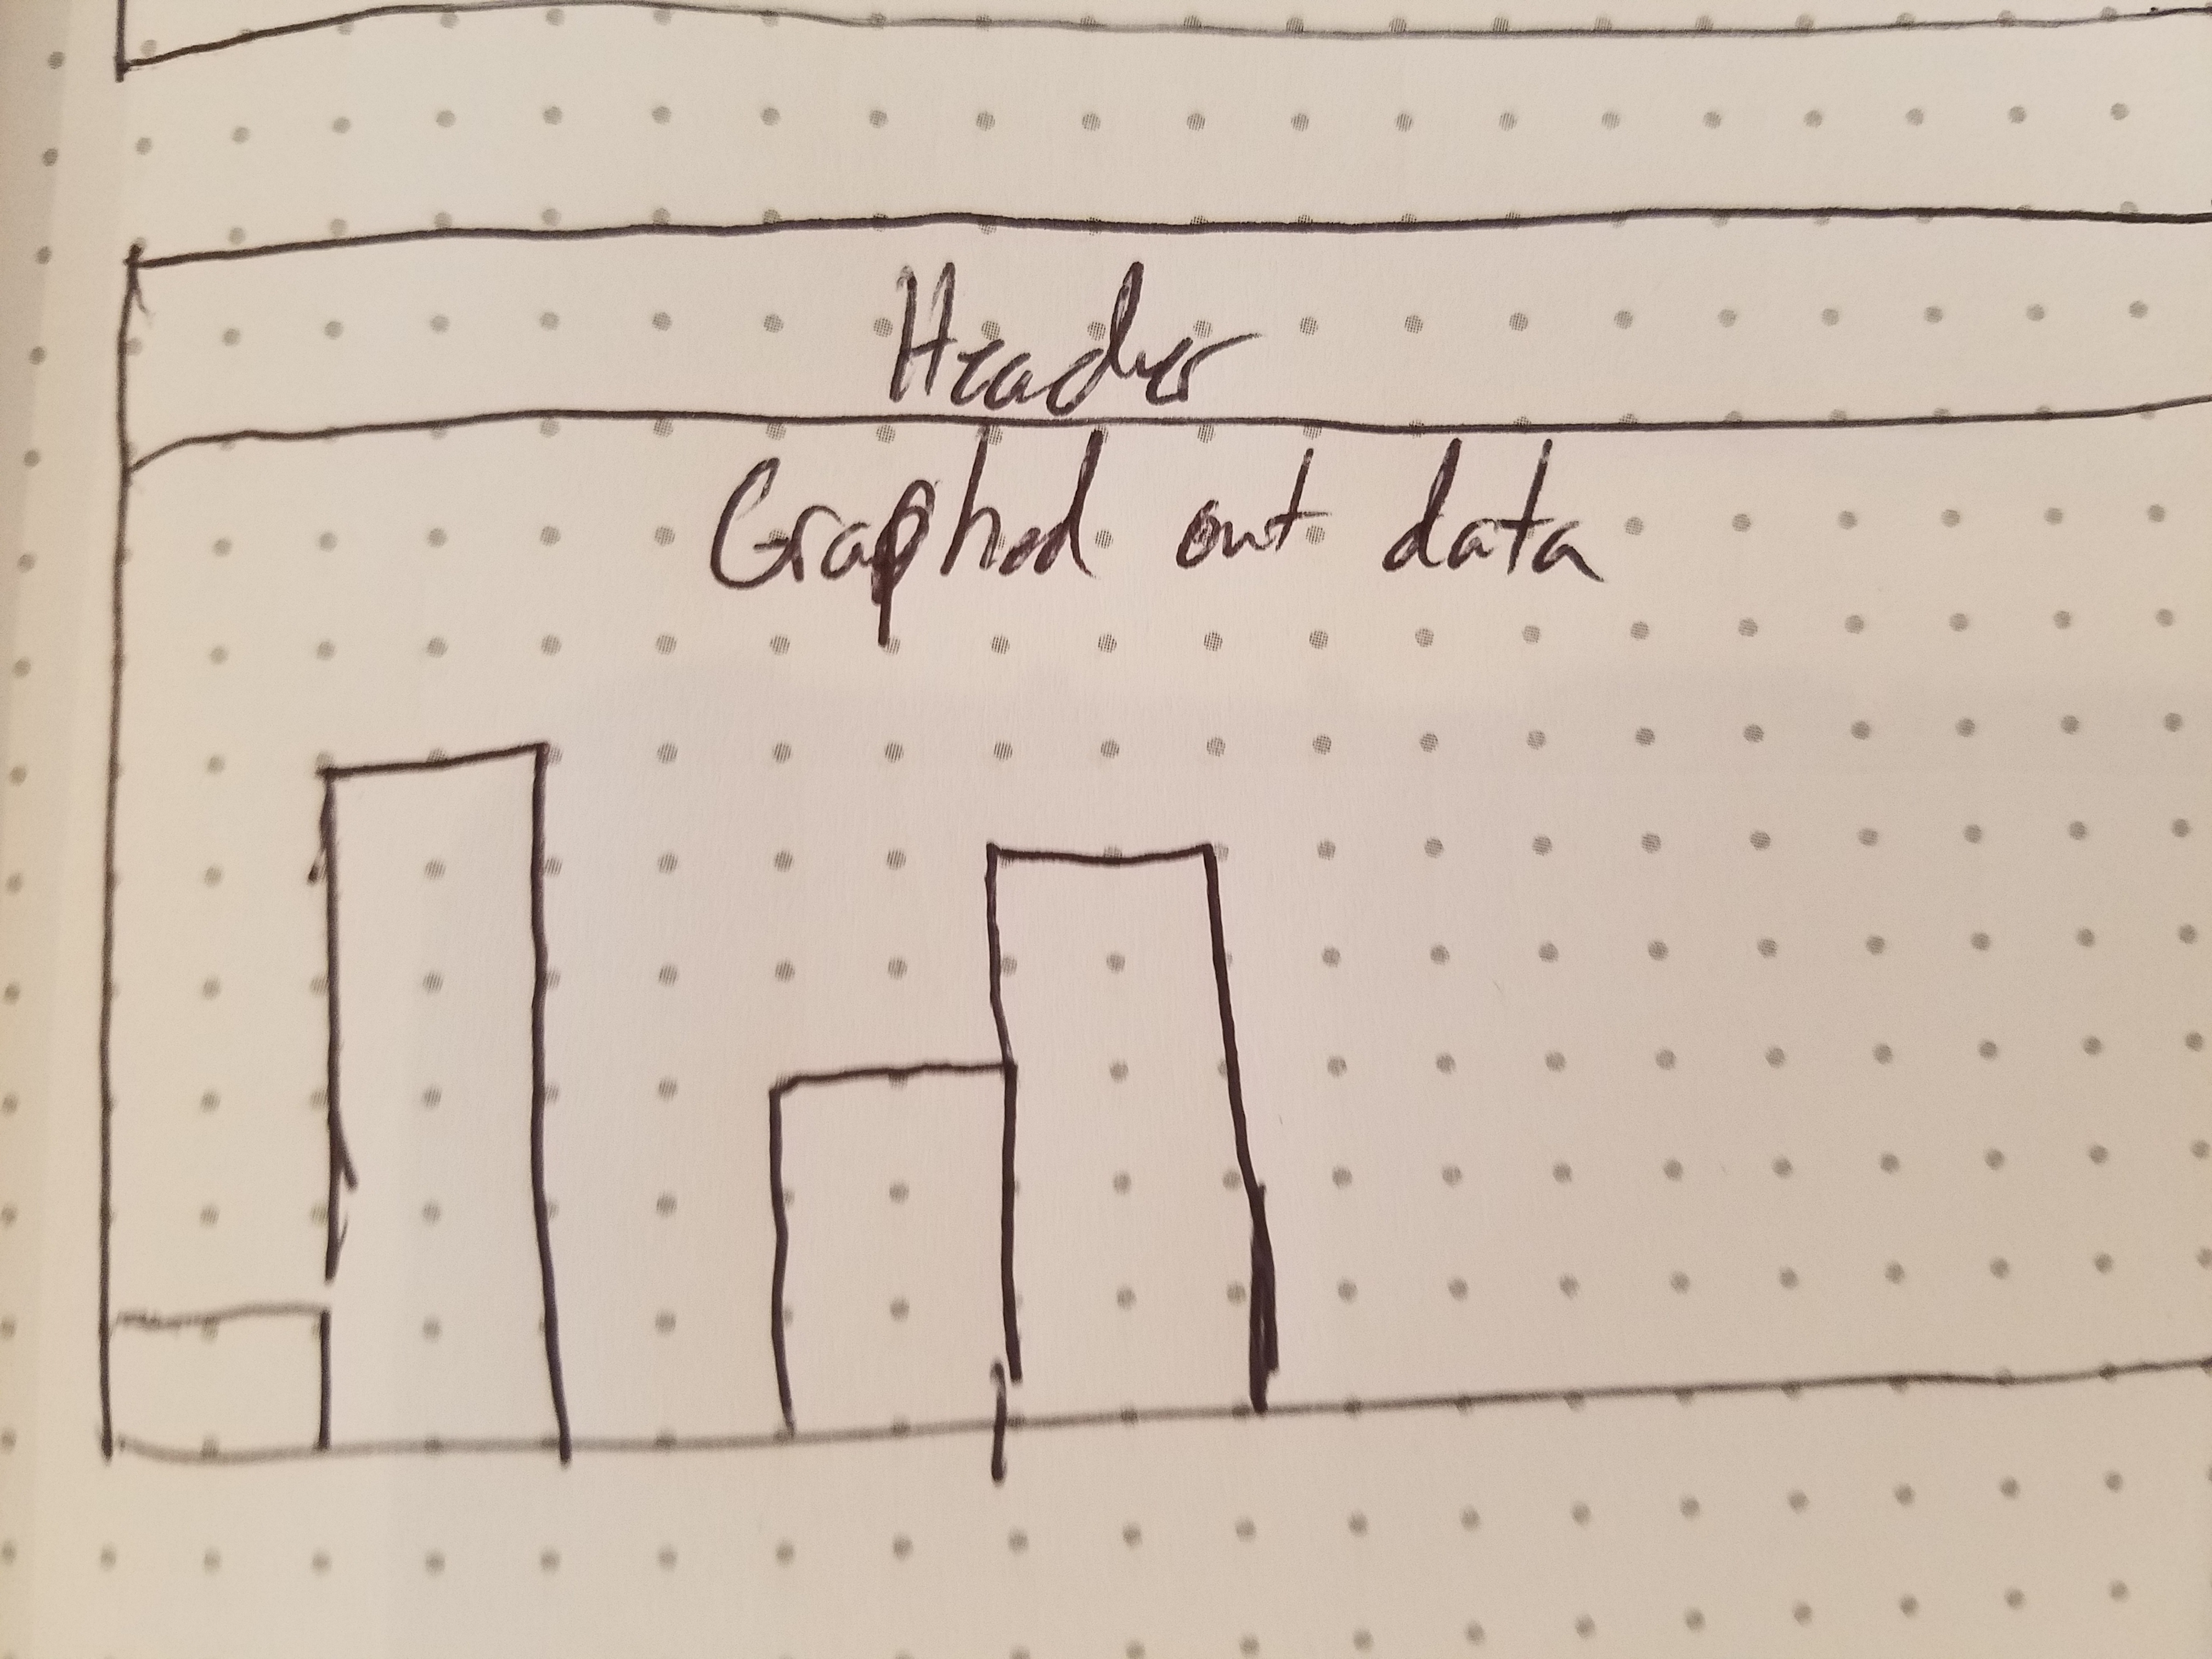 Header
Graphed out data